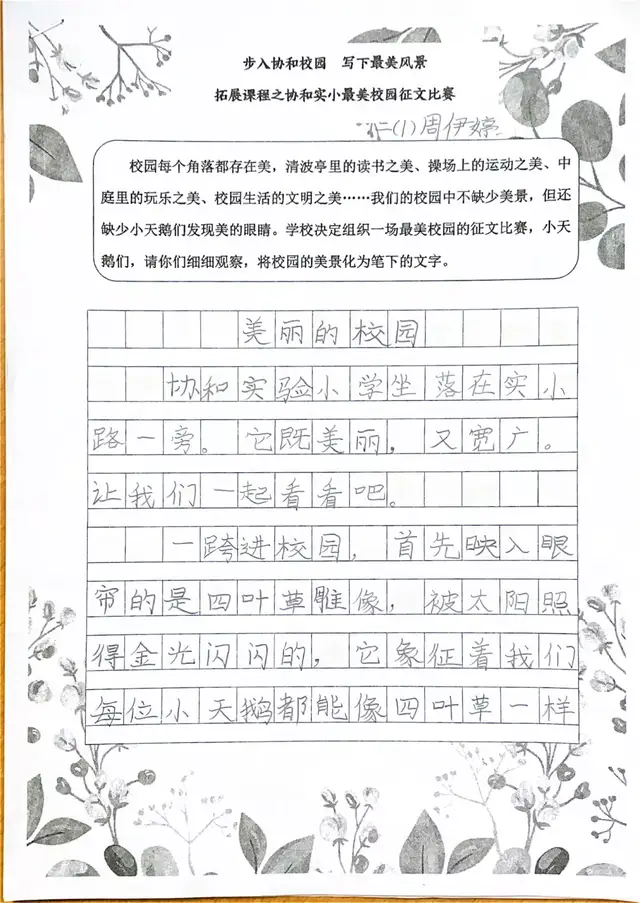 步入协和校园 写下最美风景
拓展课程之协和实小最美校园征文比赛
二(1)周伊婷
校园每个角落都存在美，清波亭里的读书之美、操场上的运动之美、中
庭里的玩乐之美、校园生活的文明之美……我们的校园中不缺少美景，但还
缺少小天鹅们发现美的眼睛。学校决定组织一场最美校园的征文比赛，小天
鹅们，请你们细细观察，将校园的美景化为笔下的文字。
美丽的校园
协和实验小学坐落在实小
路一旁。它既美丽，又宽广。
让我们一起看看吧。
一跨进校园，首先映入眼
帘的是四叶草雕像，被太阳照
得金光闪闪的，它象征着我们
每位小天鹅都能像四叶草一样